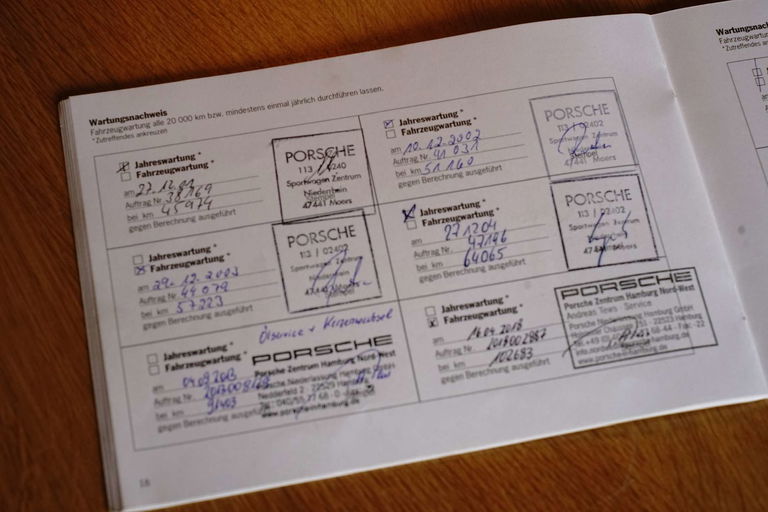 Wartungsnachweis
Fahrzeugwartung alle 20 000 km bzw. mindestens einmal jährlich durchführen lassen.
*Zutreffendes ankreuzen
Jahreswartung *
Fahrzeugwartung *
am 27.12.01
Auftrag Nr. 38169
bei km 45974
gegen Berechnung ausgeführt
PORSCHE
Sportwagen Zentrum
Niederrhein
Stempel
47441 Moers
Jahreswartung *
Fahrzeugwartung *
am 10.12.2002
Auftrag Nr. 41031
bei km 51160
gegen Berechnung ausgeführt
PORSCHE
113 / 02402
Sportwagen Zentrum
Stempel
47441 Moers
Jahreswartung *
Fahrzeugwartung *
am 29.12.2003
Auftrag Nr. 44079
bei km 57223
gegen Berechnung ausgeführt
PORSCHE
113 / 02402
Sportwagen Zentrum
Niederrhein
47441 Moers
Stempel
Jahreswartung *
Fahrzeugwartung *
am 271204
Auftrag Nr. 47196
bei km 64065
gegen Berechnung ausgeführt
PORSCHE
113 / 02402
Sportwagen Zentrum
47441 Moers
Ölservice + Kerzenwechsel
Jahreswartung *
Fahrzeugwartung *
am 04.09.2013
Auftrag Nr.
bei km 91403
gegen Berechnung ausgeführt
PORSCHE
Porsche Zentrum Hamburg Nord-West
Porsche Niederlassung Hamburg GmbH
Nedderfeld 2 22529 Hamburg
www.porsche-hamburg.de
Jahreswartung *
Fahrzeugwartung *
am 16.04.2018
Auftrag Nr. 2018002987
bei km 102683
gegen Berechnung ausgeführt
PORSCHE
Porsche Zentrum Hamburg Nord-West
Andreas Tews - Service
Porsche Niederlassung Hamburg GmbH
Holsteiner Chaussee 151 - 22523 Hamburg
www.porsche-hamburg.de
16
Wartungsnach
Fahrzeugwartun
*Zutreffendes an